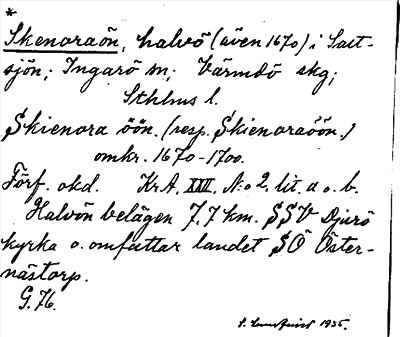 *
Skenoraön, halvö (även 1670) i Salt-
sjön; Ingarö sn; Värmdö skg;
Sthlms l.
Skienora öön. (resp. Skienoraöön.)
omkr. 1670-1700.
Förf. okd. Kr.A. XXII. N:o 2, lit. a o. b.
Halvön belägen 7,7 km. SSV Djurö
kyrka o. omfattar landet SÖ Öster-
nästorp.
G. 76.
S. Lundqvist 1935.